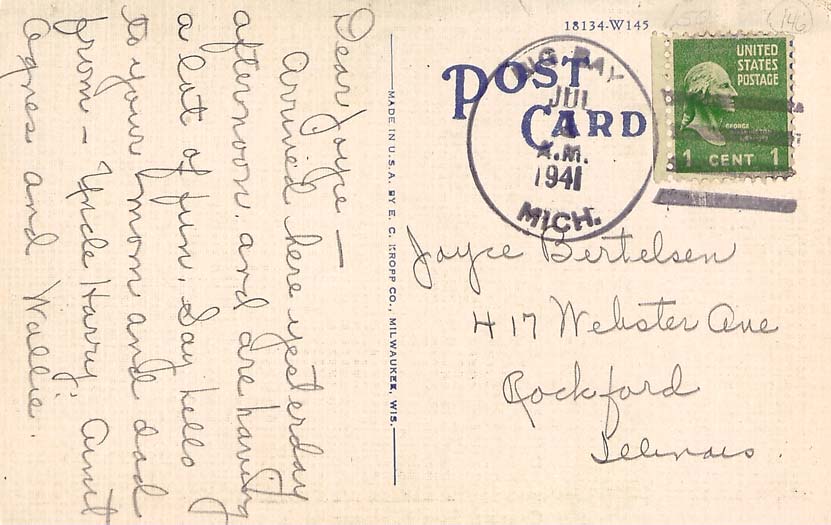 Dear Joyce —
Arrived here yesterday
afternoon, and are having
a lot of fun. Say hello
to your mom and dad
from — Uncle Harry, Aunt
Agnes and Wallie.
MADE IN U.S.A. BY E. C. KROPP CO., MILWAUKEE, WIS.
18134-W145
146
POST
CARD
BIG BAY
JUL
A.M.
1941
MICH.
UNITED
STATES
POSTAGE
GEORGE
1 CENT 1
Joyce Bertelsen
417 Webster Ave
Rockford
Illinois.